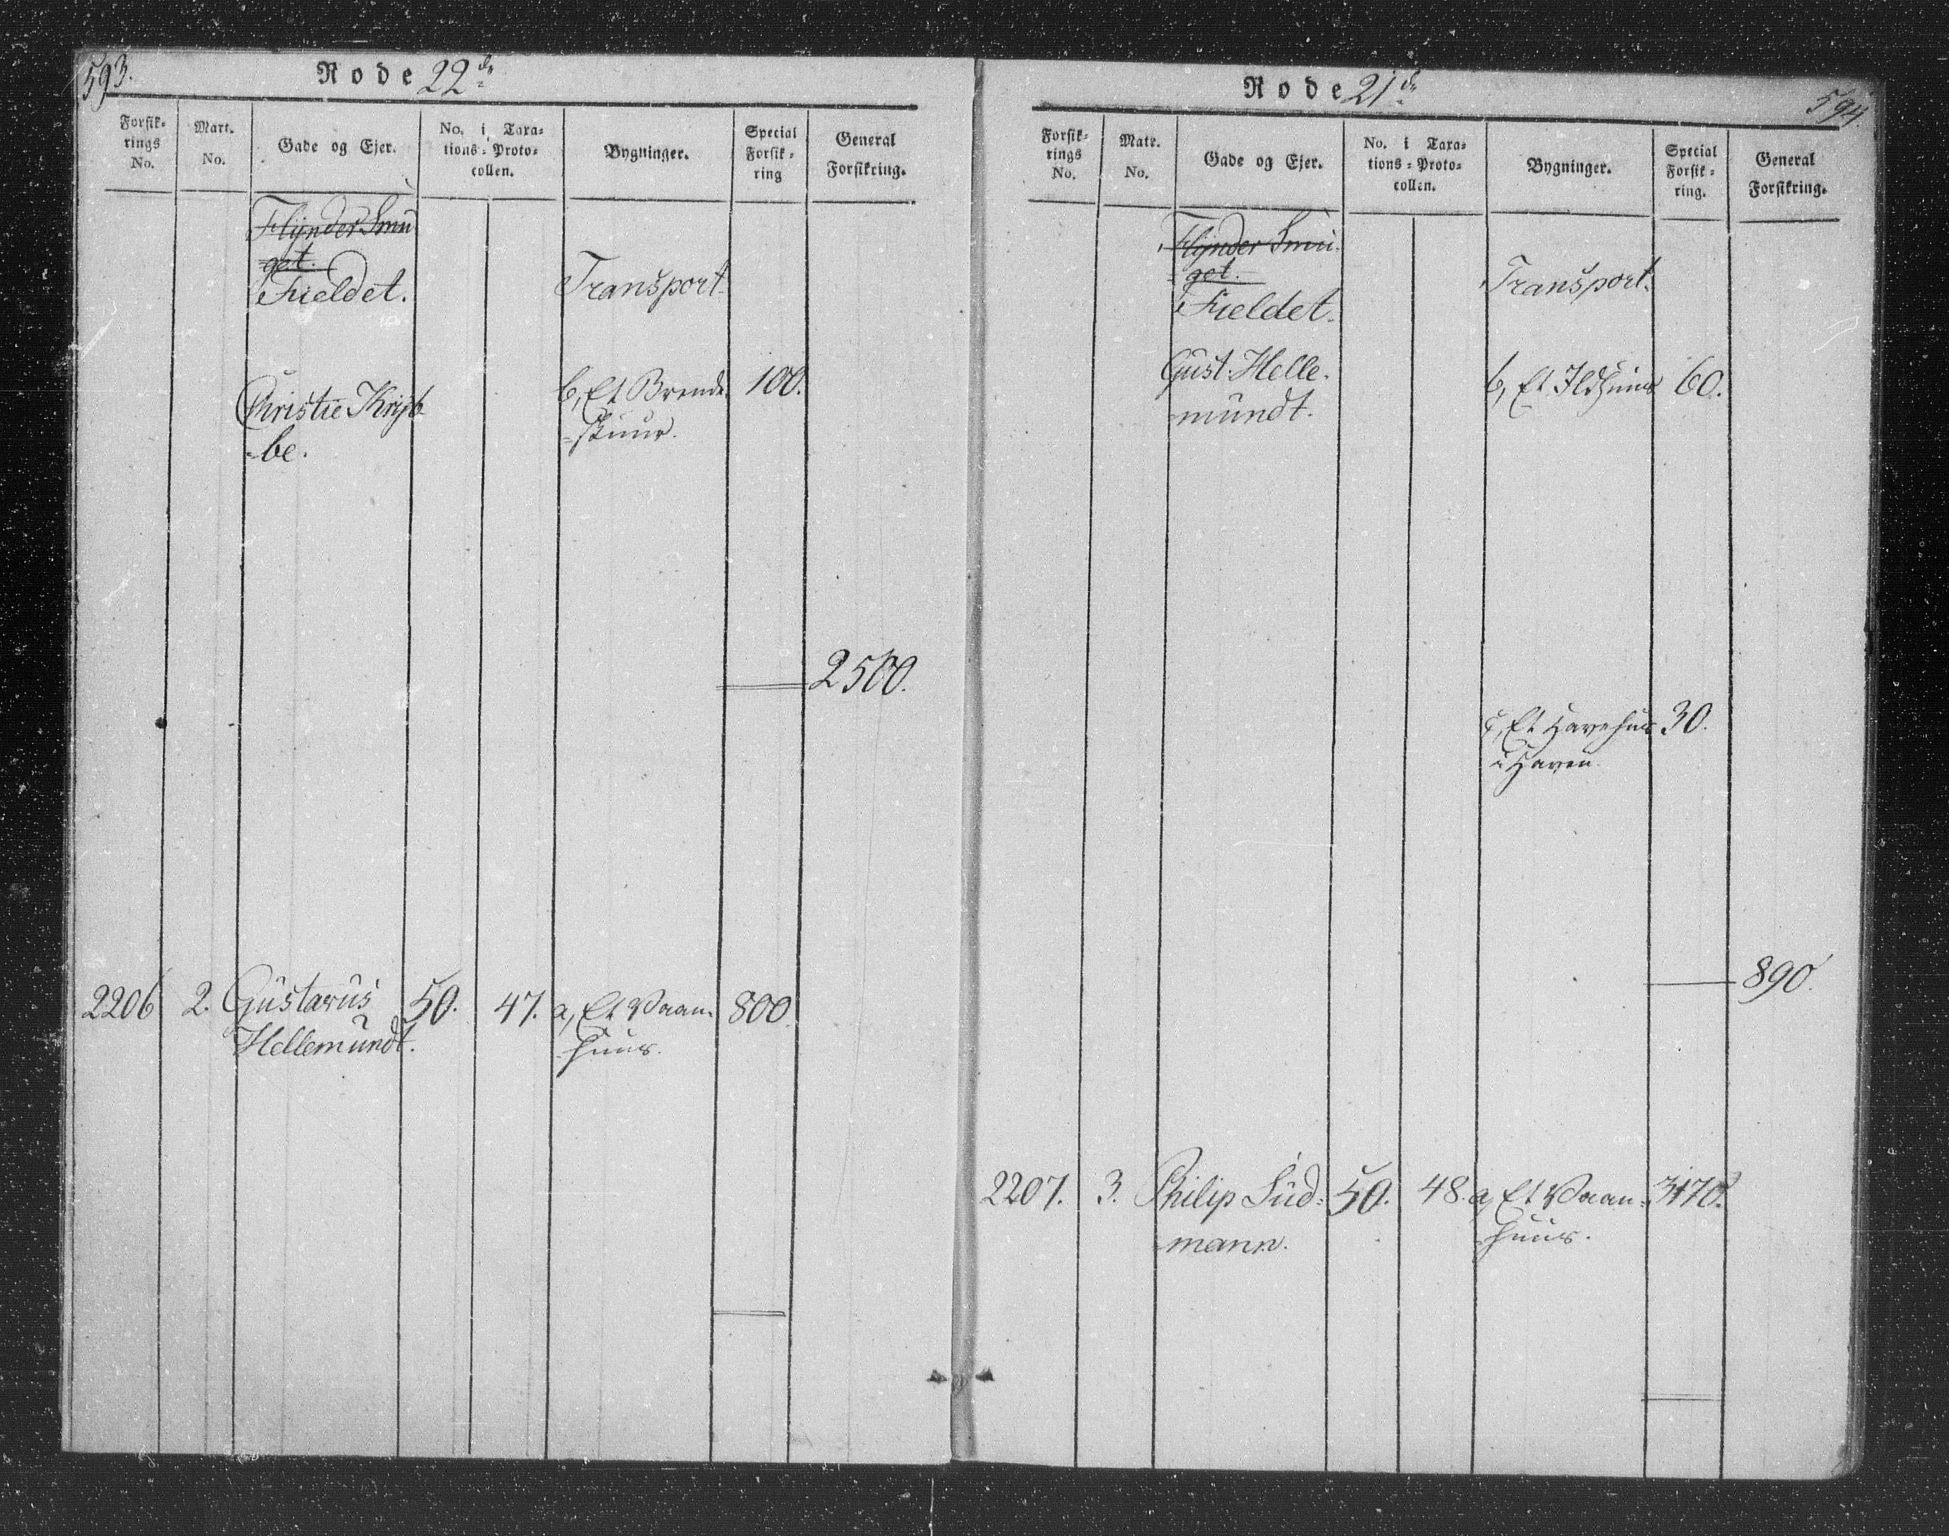 593.
Rode 22de
Forsik-
rings
No.
Mart.
No.
Gade og Ejer.
No. i Taxa-
tions-Proto-
collen.
Bygninger.
Special
Forsik-
ring
General
Forsikring.
Flynder Smu
get.
Fieldet.
Transport
Christie Kryb
be.
b, Et Brende
skuur.
100.
2500.
2206 2. Gustavus 50. 47. a, Et Vaan- 800.
Hellemundt. huus.
Rode 21de
594.
Forsik-
rings
No.
Matr.
No.
Gade og Ejer.
No. i Taxa-
tions-Proto-
collen.
Bygninger.
Special
Forsik-
ring.
General
Forsikring.
Flynder Smu-
get.
Fieldet.
Transport.
Gust. Helle-
mundt.
b, Et Ildhuus 60.
c, Et Havehus 30.
i Haven.
890.
2207. 3. Philip Lüd- 50. 48. a, Et Vaan-
mann. huus.